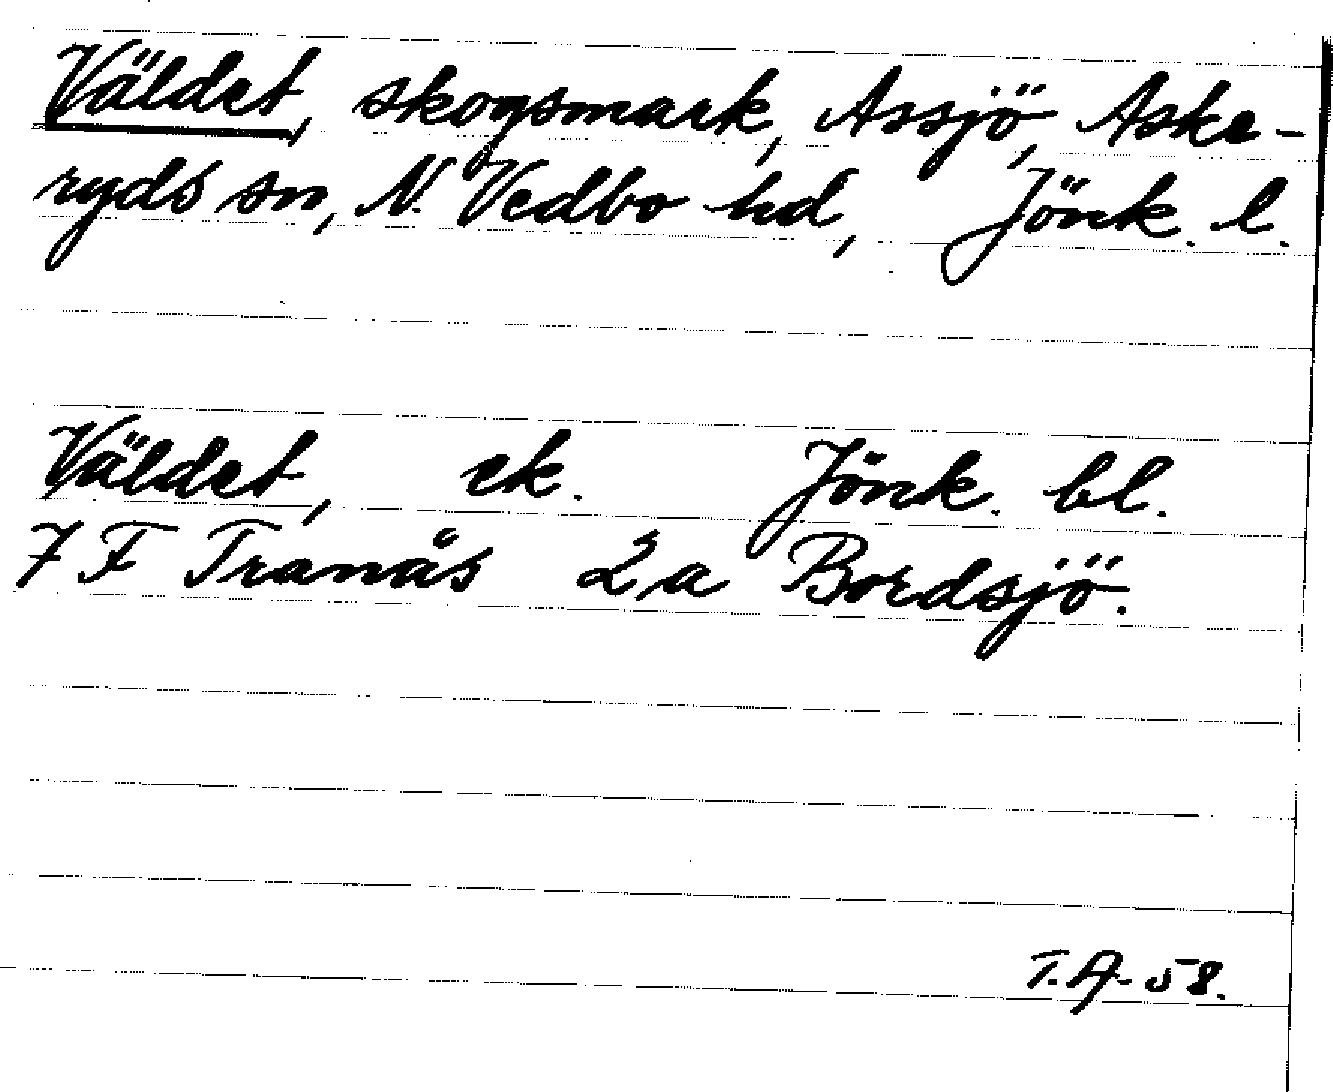 Väldet, skogsmark, Assjö, Aske-
ryds sn, N. Vedbo hd, Jönk. l.
Väldet, ek. Jönk. bl.
7 F Tranås 2a Bordsjö.
T.A-58.